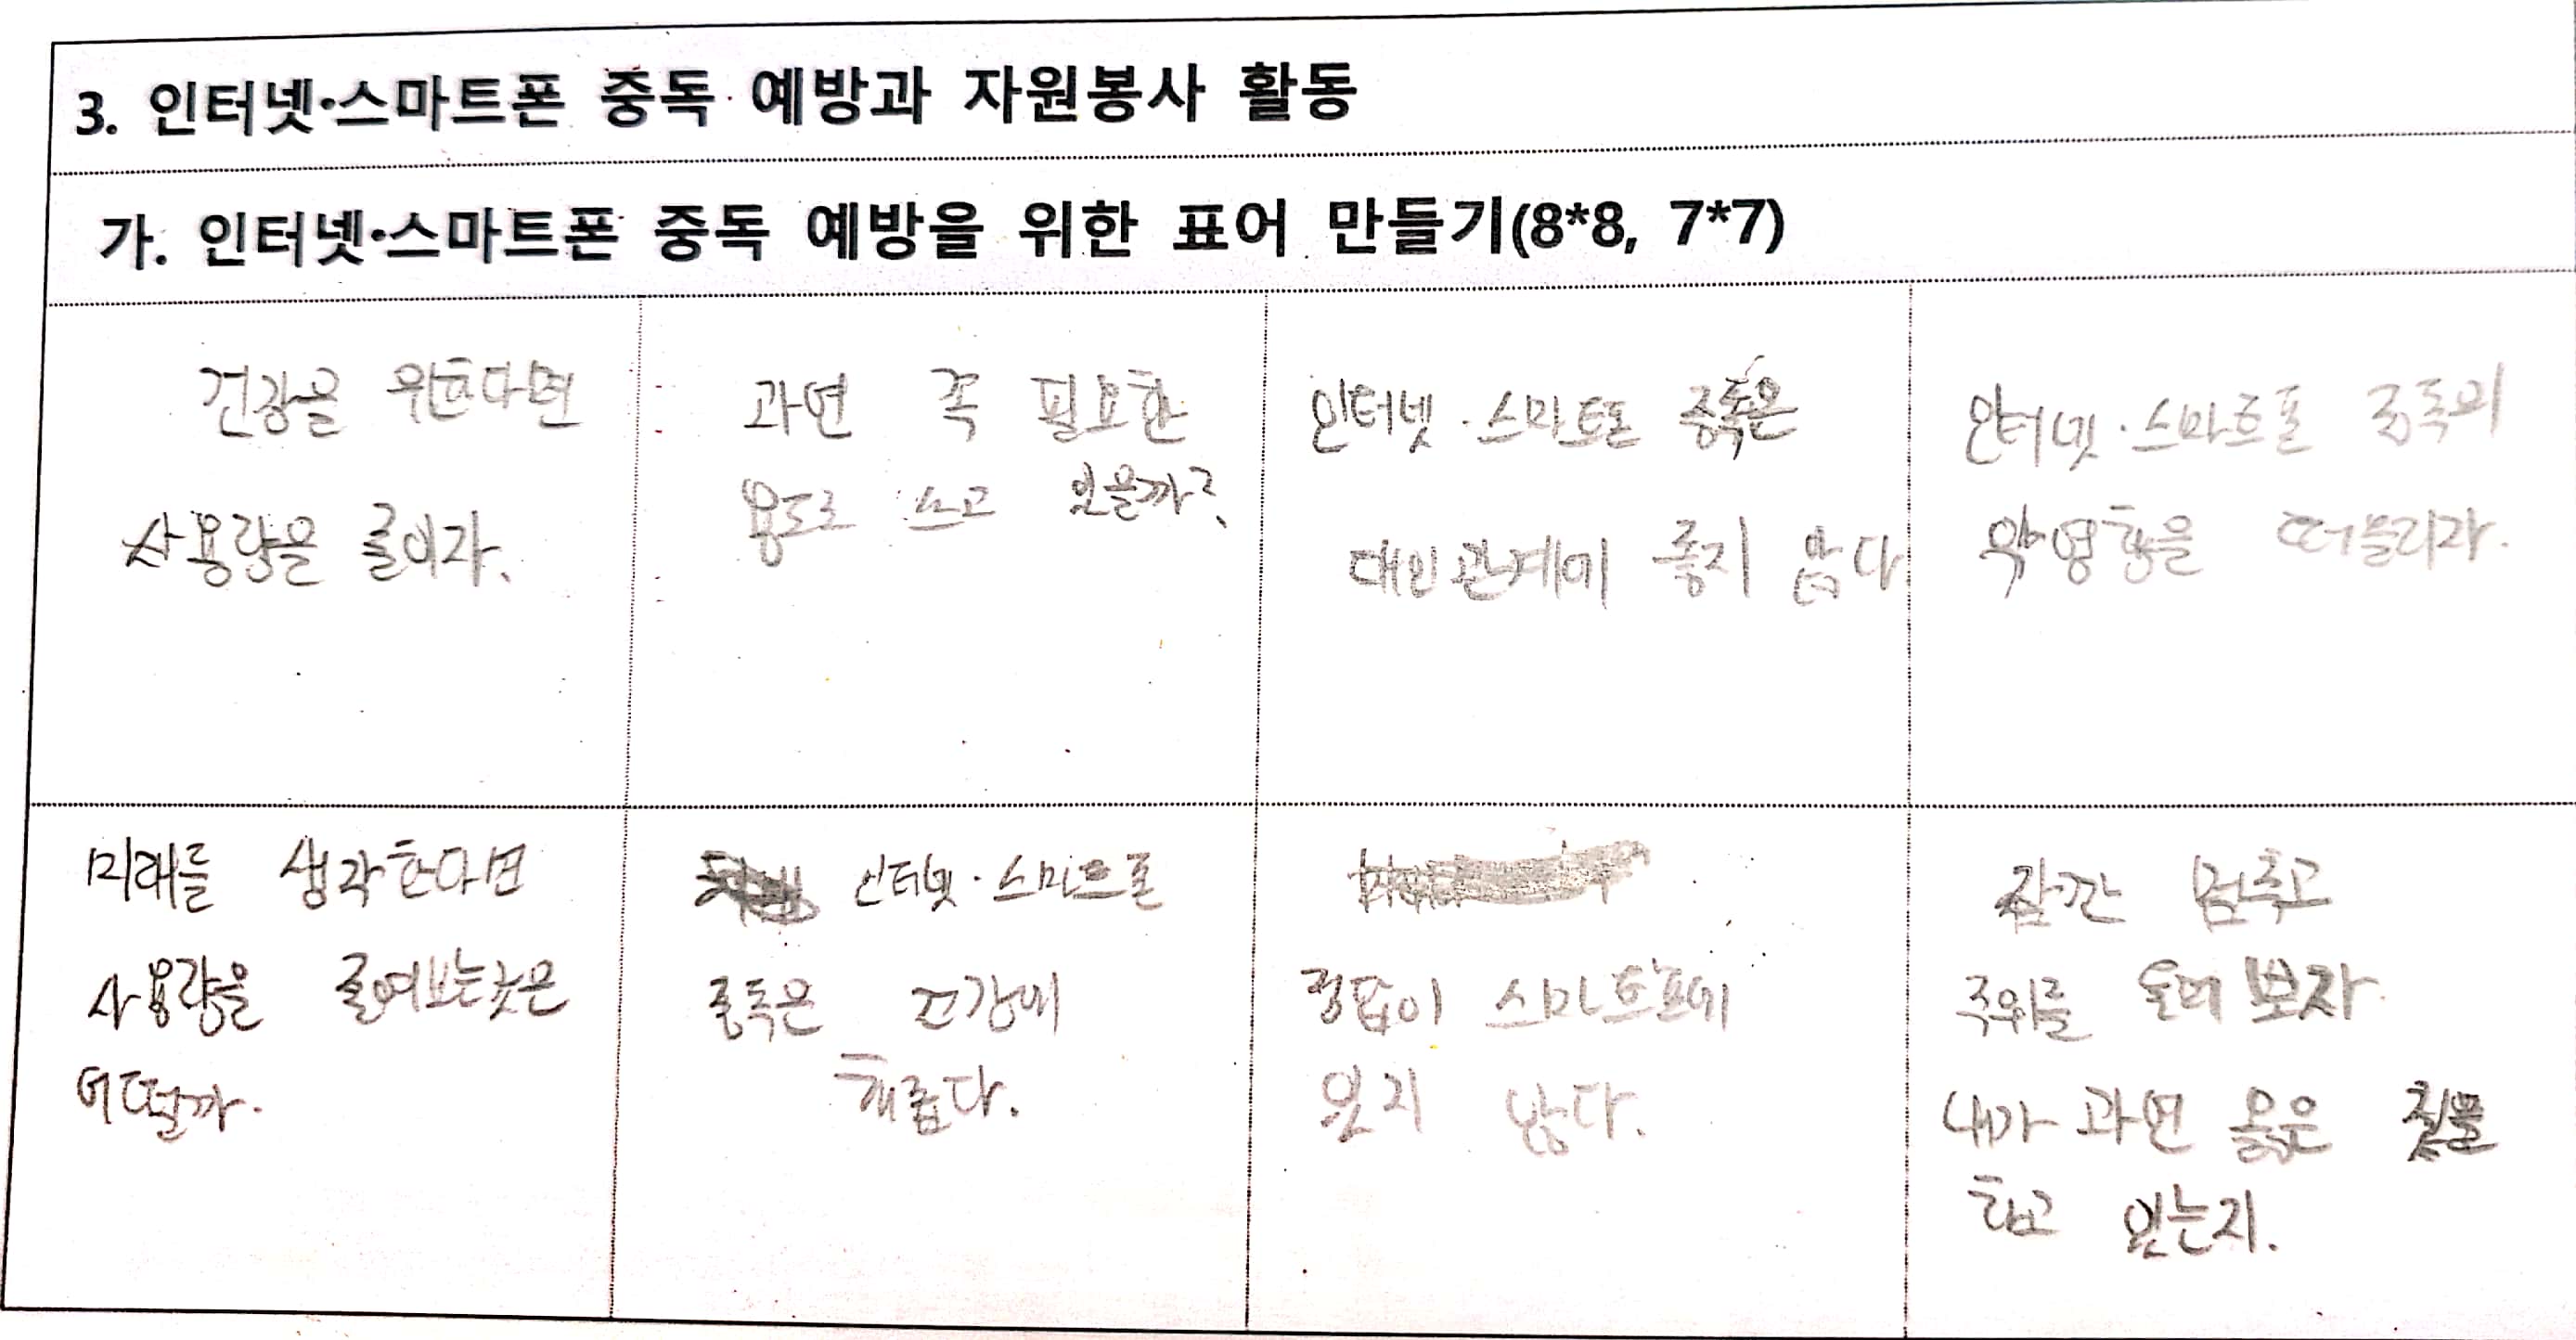 3. 인터넷·스마트폰 중독 예방과 자원봉사 활동
가. 인터넷·스마트폰 중독 예방을 위한 표어 만들기(8*8, 7*7)
건강을 위한다면
사용량을 줄이자.
과연 꼭 필요한
용도로 쓰고 있을까?
인터넷·스마트폰 중독은
대인관계에 좋지 않다
인터넷·스마트폰 중독의
악영향을 떠올리자.
미래를 생각한다면
사용량을 줄여보는것은
어떨까.
인터넷·스마트폰
중독은 건강에
해롭다.
정답이 스마트폰에
있지 않다.
잠깐 멈추고
주위를 둘러보자
내가 과연 옳은 짓을
하고 있는지.